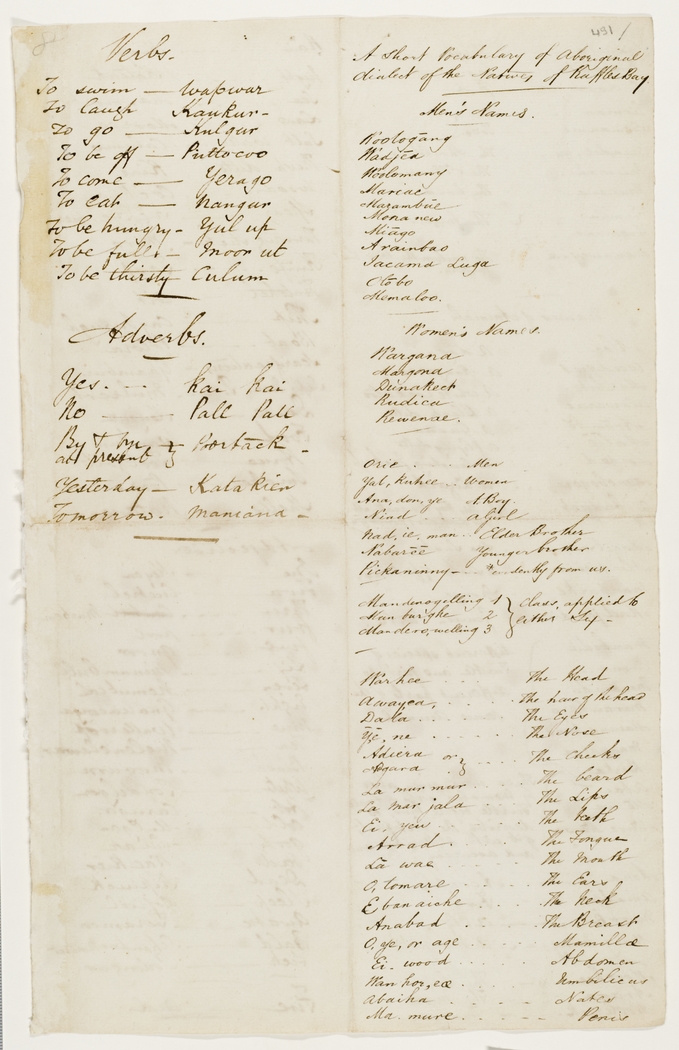 Verbs.
To swim — Wapwar
To laugh Kaukur -
To go — Kulgur
To be off — Puttocoo
To come — Yerago
To eat — Nangur
To be hungry - Yul up
To be full - Moor ut
To be thirsty Culum
Adverbs.
Yes. - - - Kai Kai
No — Pall Pall
By & bye
at present } Portack -
Yesterday — Kata kien
Tomorrow. Maniana -
431 /
A Short Vocabulary of Aboriginal
dialect of the Natives of Raffles Bay
Men's Names.
Woologang
Wadjea
Woolomany
Mariac
Marambūe
Mona new
Miago
Arainbao
Jacama Luga
Olobo
Memaloo.
Women's Names.
Wargana
Margona
Dūnakeet
Rudica
Rewenae.
Orie . . . Men
Yal, kuhee . . Women
Ana, don, ye A Boy.
Niud . . a Girl
Nad, ie, man . . Elder Brother
Nabaree Younger brother
Pickaninny — evidently from us.
Mandenogelling 1
Man burghe 2 } Class, applied to
Mandero, welling 3 either
Warhee . . . The Head
Awayea, . . . . The hair of the head
Dala . . . . . The Eyes
Ye, ne . . . . The Nose
Adiera or
Agara } . . . The Cheeks
La mur mur . . . . The beard
La mar jala . . . The Lips
Ei, yeu . . . . The Teeth
Arrad . . . . The Tongue
La wae . . . . The Mouth
O, tomare . . . . The Ears
Ebanaiche . . . . The Neck
Anabad . . . . The Breast
O, ye, or age . . . . Mamillæ
Ei. wood . . . . Abdomen
Wan hor, eæ . . . . Umbilicus
Abaiha . . . . Nates
Ma. mure . - - - Penis